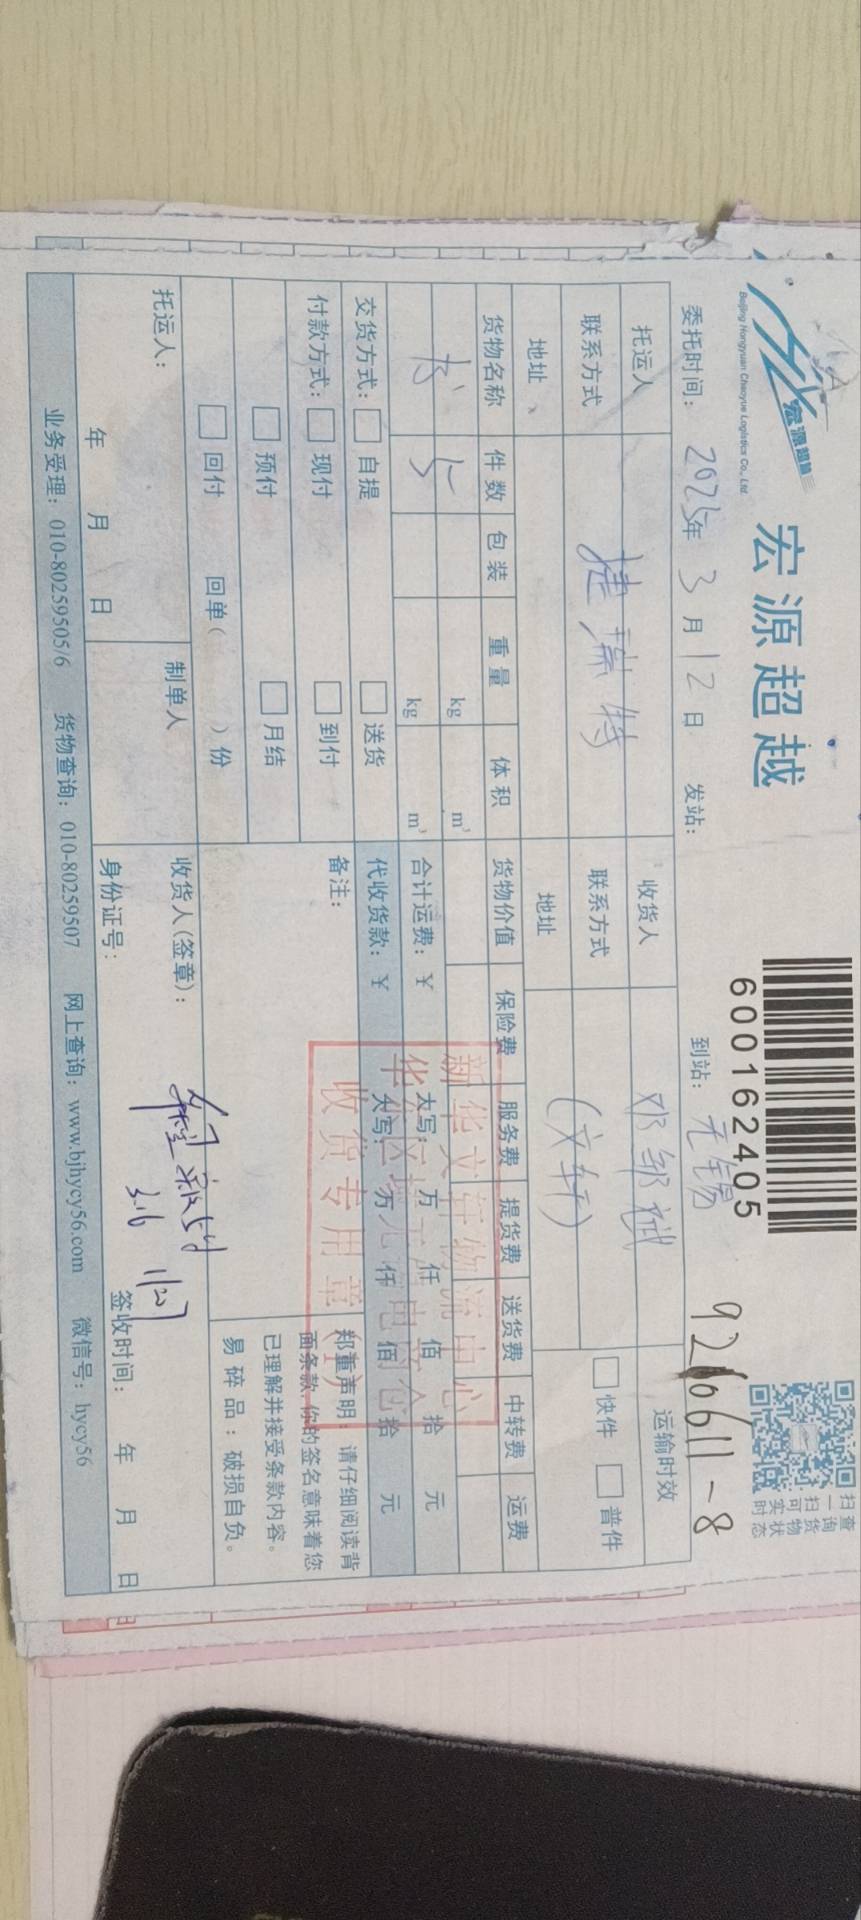 宏源超越
Beijing Hongyuan Chaoyue Logistics Co., Ltd.
宏源超越
600162405
扫一扫 查询货物可实时状态
委托时间: 2025年 3月 12日 发站: 到站: 无锡 926611-8
托运人 收货人 运输时效
联系方式 捷瑞特 联系方式 (文轩) 快件 普件
地址 地址
货物名称 件数 包装 重量 体积 货物价值 保险费 服务费 提货费 送货费 中转费 运费
书 5 kg m³
kg m³ 合计运费: ¥ 大写: 万 仟 佰 拾 元
交货方式: 自提 送货 代收货款: ¥ 大写: 万 仟 佰 拾 元
付款方式: 现付 到付 备注:
预付 月结
回付 回单( )份
新华文轩物流中心
收货专用章
郑重声明: 请仔细阅读背
面条款,你的签名意味着您
已理解并接受条款内容。
易碎品:破损自负。
托运人: 制单人 收货人(签章):
3.16
年 月 日 身份证号: 签收时间: 年 月 日
业务受理: 010-80259505/6 货物查询: 010-80259507 网上查询: www.bjhycy56.com 微信号: hycy56